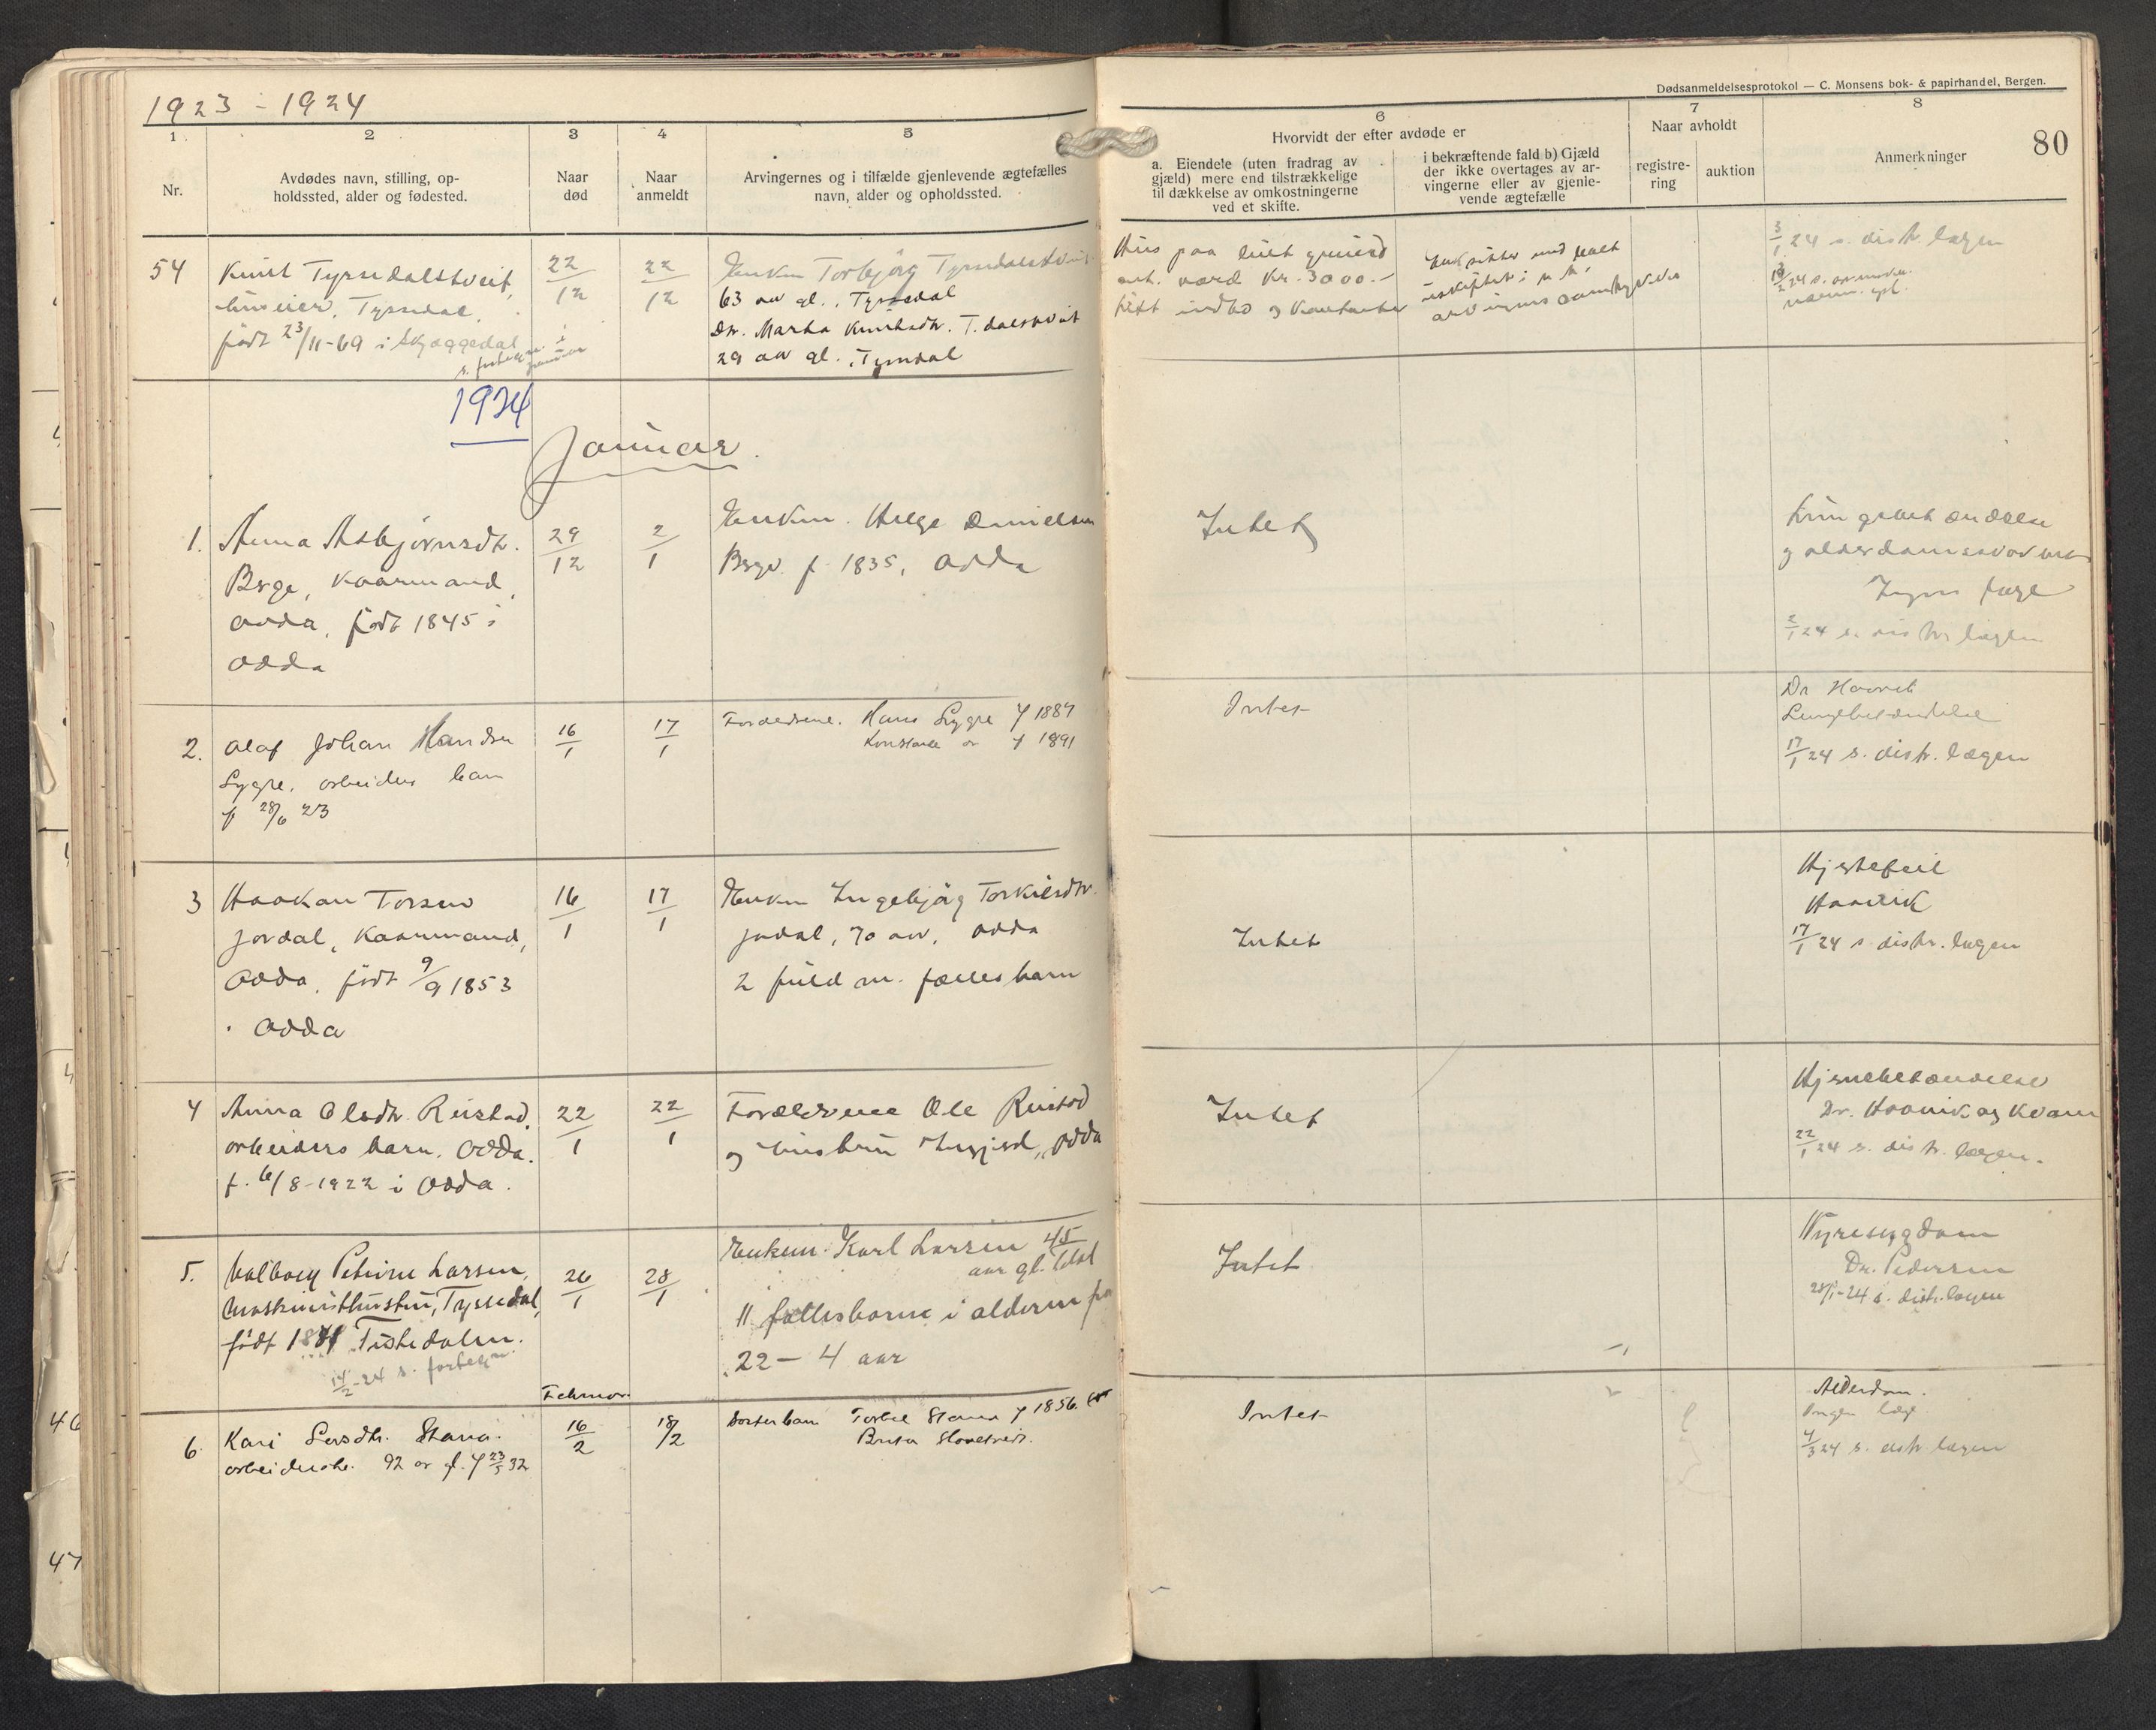 1923 - 1924
Dødsanmeldelsesprotokol — C. Monsens bok- & papirhandel, Bergen.
80
1
Nr.
2
Avdødes navn, stilling, op-
holdssted, alder og fødested.
3
Naar
død
4
Naar
anmeldt
5
Arvingernes og i tilfælde gjenlevende ægtefælles
navn, alder og opholdssted.
6
Hvorvidt der efter avdøde er
a. Eiendele (uten fradrag av
gjæld) mere end tilstrækkelige
til dækkelse av omkostningerne
ved et skifte.
i bekræftende fald b) Gjæld
der ikke overtages av ar-
vingerne eller av gjenle-
vende ægtefælle
7
Naar avholdt
registre-
ring
auktion
8
Anmerkninger
54
Knut Tyssedalstveit,
huseier, Tyssedal,
født 23/11-69 i Skjæggedal
22/12
22/12
Enken Torbjørg Tyssedalstveit
63 aar gl., Tyssedal
Dtr. Marta Knutsdtr. T.dalstveit
29 aar gl., Tyssedal
Hus paa leiet grund
ant. værd kr. 3000.-
litt indbo og kontanter
Enken sitter med
uskiftet
arvingens samtykke
3/1 24 s. distr. lægen
1924
Januar.
1.
Anna Asbjørnsdtr.
Berge, kaarmand,
Odda, født 1845 i
Odda
29/12
2/1
Enkem. Helge Danielsen
Berge f. 1835, Odda
Intet
og alderdomssvakhet
Ingen læge
2/1 24 s. distr. lægen
2.
Olaf Johan Hansen
Lygre, arbeider barn
f 28/6 23
16/1
17/1
Forældrene. Hans Lygre f 1887
f 1891
Intet
Dr Haavik
Lungebetændelse
17/1 24 s. distr. lægen
3
Haakon Torsen
Jordal, kaarmand,
Odda, født 9/9 1853
i Odda
16/1
17/1
Enken Ingebjørg Torkilsdtr.
Jordal, 70 aar, Odda
2 fuld m. fælles barn
Intet
Hjertefeil
Haavik
17/1 24 s. distr. lægen
4
Anna Olsdtr. Reistad,
arbeiders barn, Odda.
f. 6/8-1922 i Odda.
22/1
22/1
Forældrene Ole Reistad
og hustru Ingjerd, Odda
Intet
Hjernebetændelse
Dr. Haavik og Kvam
22/1 24 s. distr. lægen.
5.
Valborg Petrine Larsen,
maskinisthustru, Tyssedal,
født 1881 Tistedalen.
14/2-24 s. fortegn.
26/1
28/1
Enkem. Karl Larsen 45
aar gl.
11 fællesbarn i alderen fra
22 - 4 aar
Intet
Nyresygdom
Dr. Pedersen
28/1-24 s. distr.lægen
Februar
6.
Kari Larsdtr. Stana.
92 ar gl. f 23/5 32
16/2
18/2
Søsterbarn Torbel Stana f 1856.
Brita
Intet
Alderdom.
Ingen læge
4/3 24 s. distr. lægen
46
47